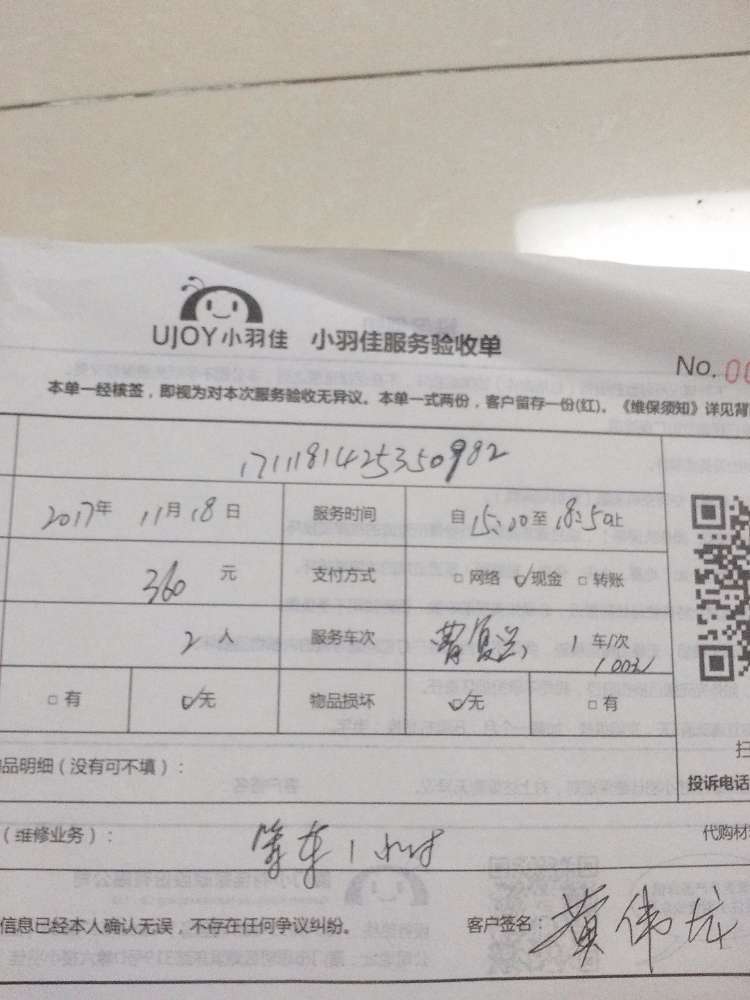 UJOY小羽佳 小羽佳服务验收单
No. 00
本单一经核签，即视为对本次服务验收无异议。本单一式两份，客户留存一份(红)。《维保须知》详见背
1711181425350982
2017年 11月 18日 服务时间 自 15:00至 18:50止
360 元 支付方式 □ 网络 ☑现金 □ 转账
2 人 服务车次 曹复兴 1 车/次
□ 有 ☑无 物品损坏 ☑无 □ 有
品明细（没有可不填）：
投诉电话
（维修业务）： 等车1小时
代购材
信息已经本人确认无误，不存在任何争议纠纷。 客户签名： 黄伟龙